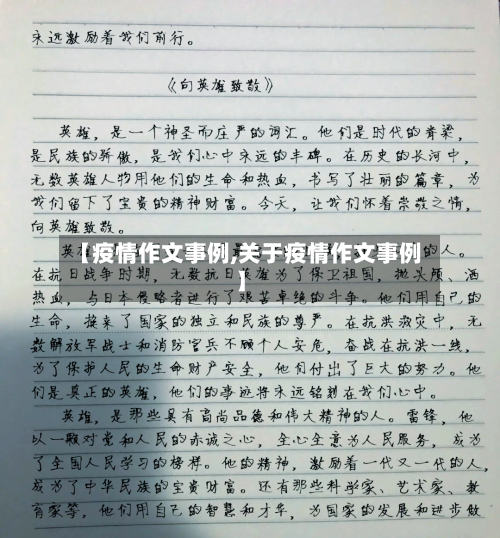 永远激励着我们前行。
《向英雄致敬》
英雄，是一个神圣而庄严的词汇。他们是时代的脊梁，
是民族的骄傲，是我们心中永远的丰碑。在历史的长河中，
无数英雄人物用他们的生命和热血，书写了壮丽的篇章，为
我们留下了宝贵的精神财富。今天，让我们怀着崇敬之情，
向英雄致敬。
【疫情作文事例,关于疫情作文事例
】
英 的人。
在抗日战争时期，无数抗日英雄为了保卫祖国，抛头颅、洒
热血，与日本侵略者进行了艰苦卓绝的斗争。他们用自己的
生命，换来了国家的独立和民族的尊严。在抗洪救灾中，无
数解放军战士和消防官兵不顾个人安危，奋战在抗洪一线，
为了保护人民的生命财产安全，他们付出了巨大的努力。他
们是真正的英雄，他们的事迹将永远铭刻在我们心中。
英雄，是那些具有高尚品德和伟大精神的人。雷锋，他
以一颗对党和人民的赤诚之心，全心全意为人民服务，成为
了全国人民学习的榜样。他的精神，激励着一代又一代的人，
成为了中华民族的宝贵财富。还有那些科学家、艺术家、教
育家等，他们用自己的智慧和才华，为国家的发展和进步做